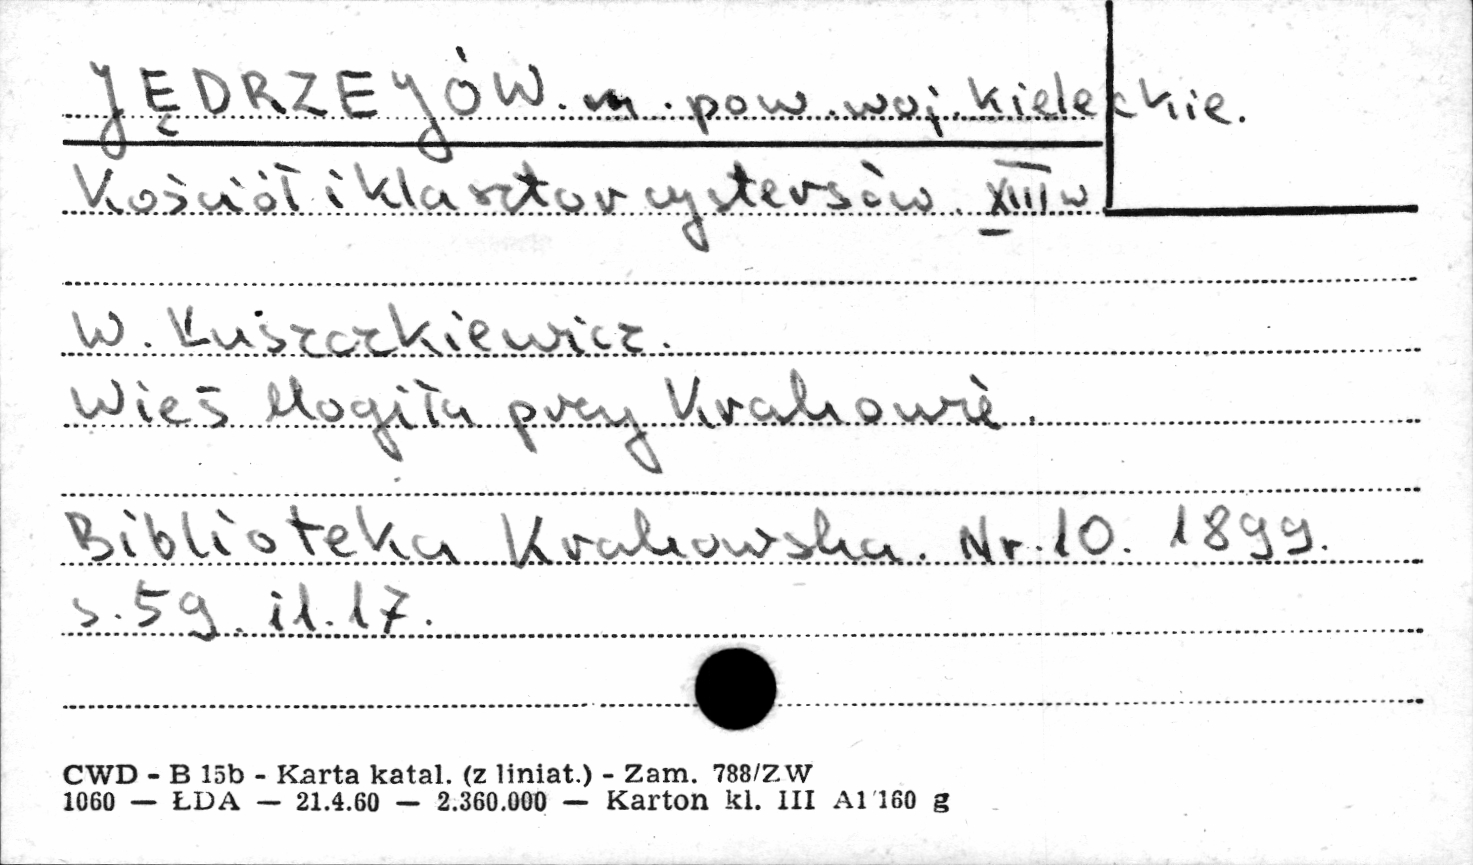 JĘDRZEJÓW. m. pow. woj. kieleckie.
Kościół i klasztor cystersów. XIII w
W. Łuszczkiewicz.
Wieś Mogiła przy Krakowie.
Biblioteka Krakowska. Nr. 10. 1899.
s. 59. il. 17.
CWD - B 15b - Karta katal. (z liniat.) - Zam. 788/ZW
1060 — ŁDA — 21.4.60 — 2.360.000 — Karton kl. III A1 160 g